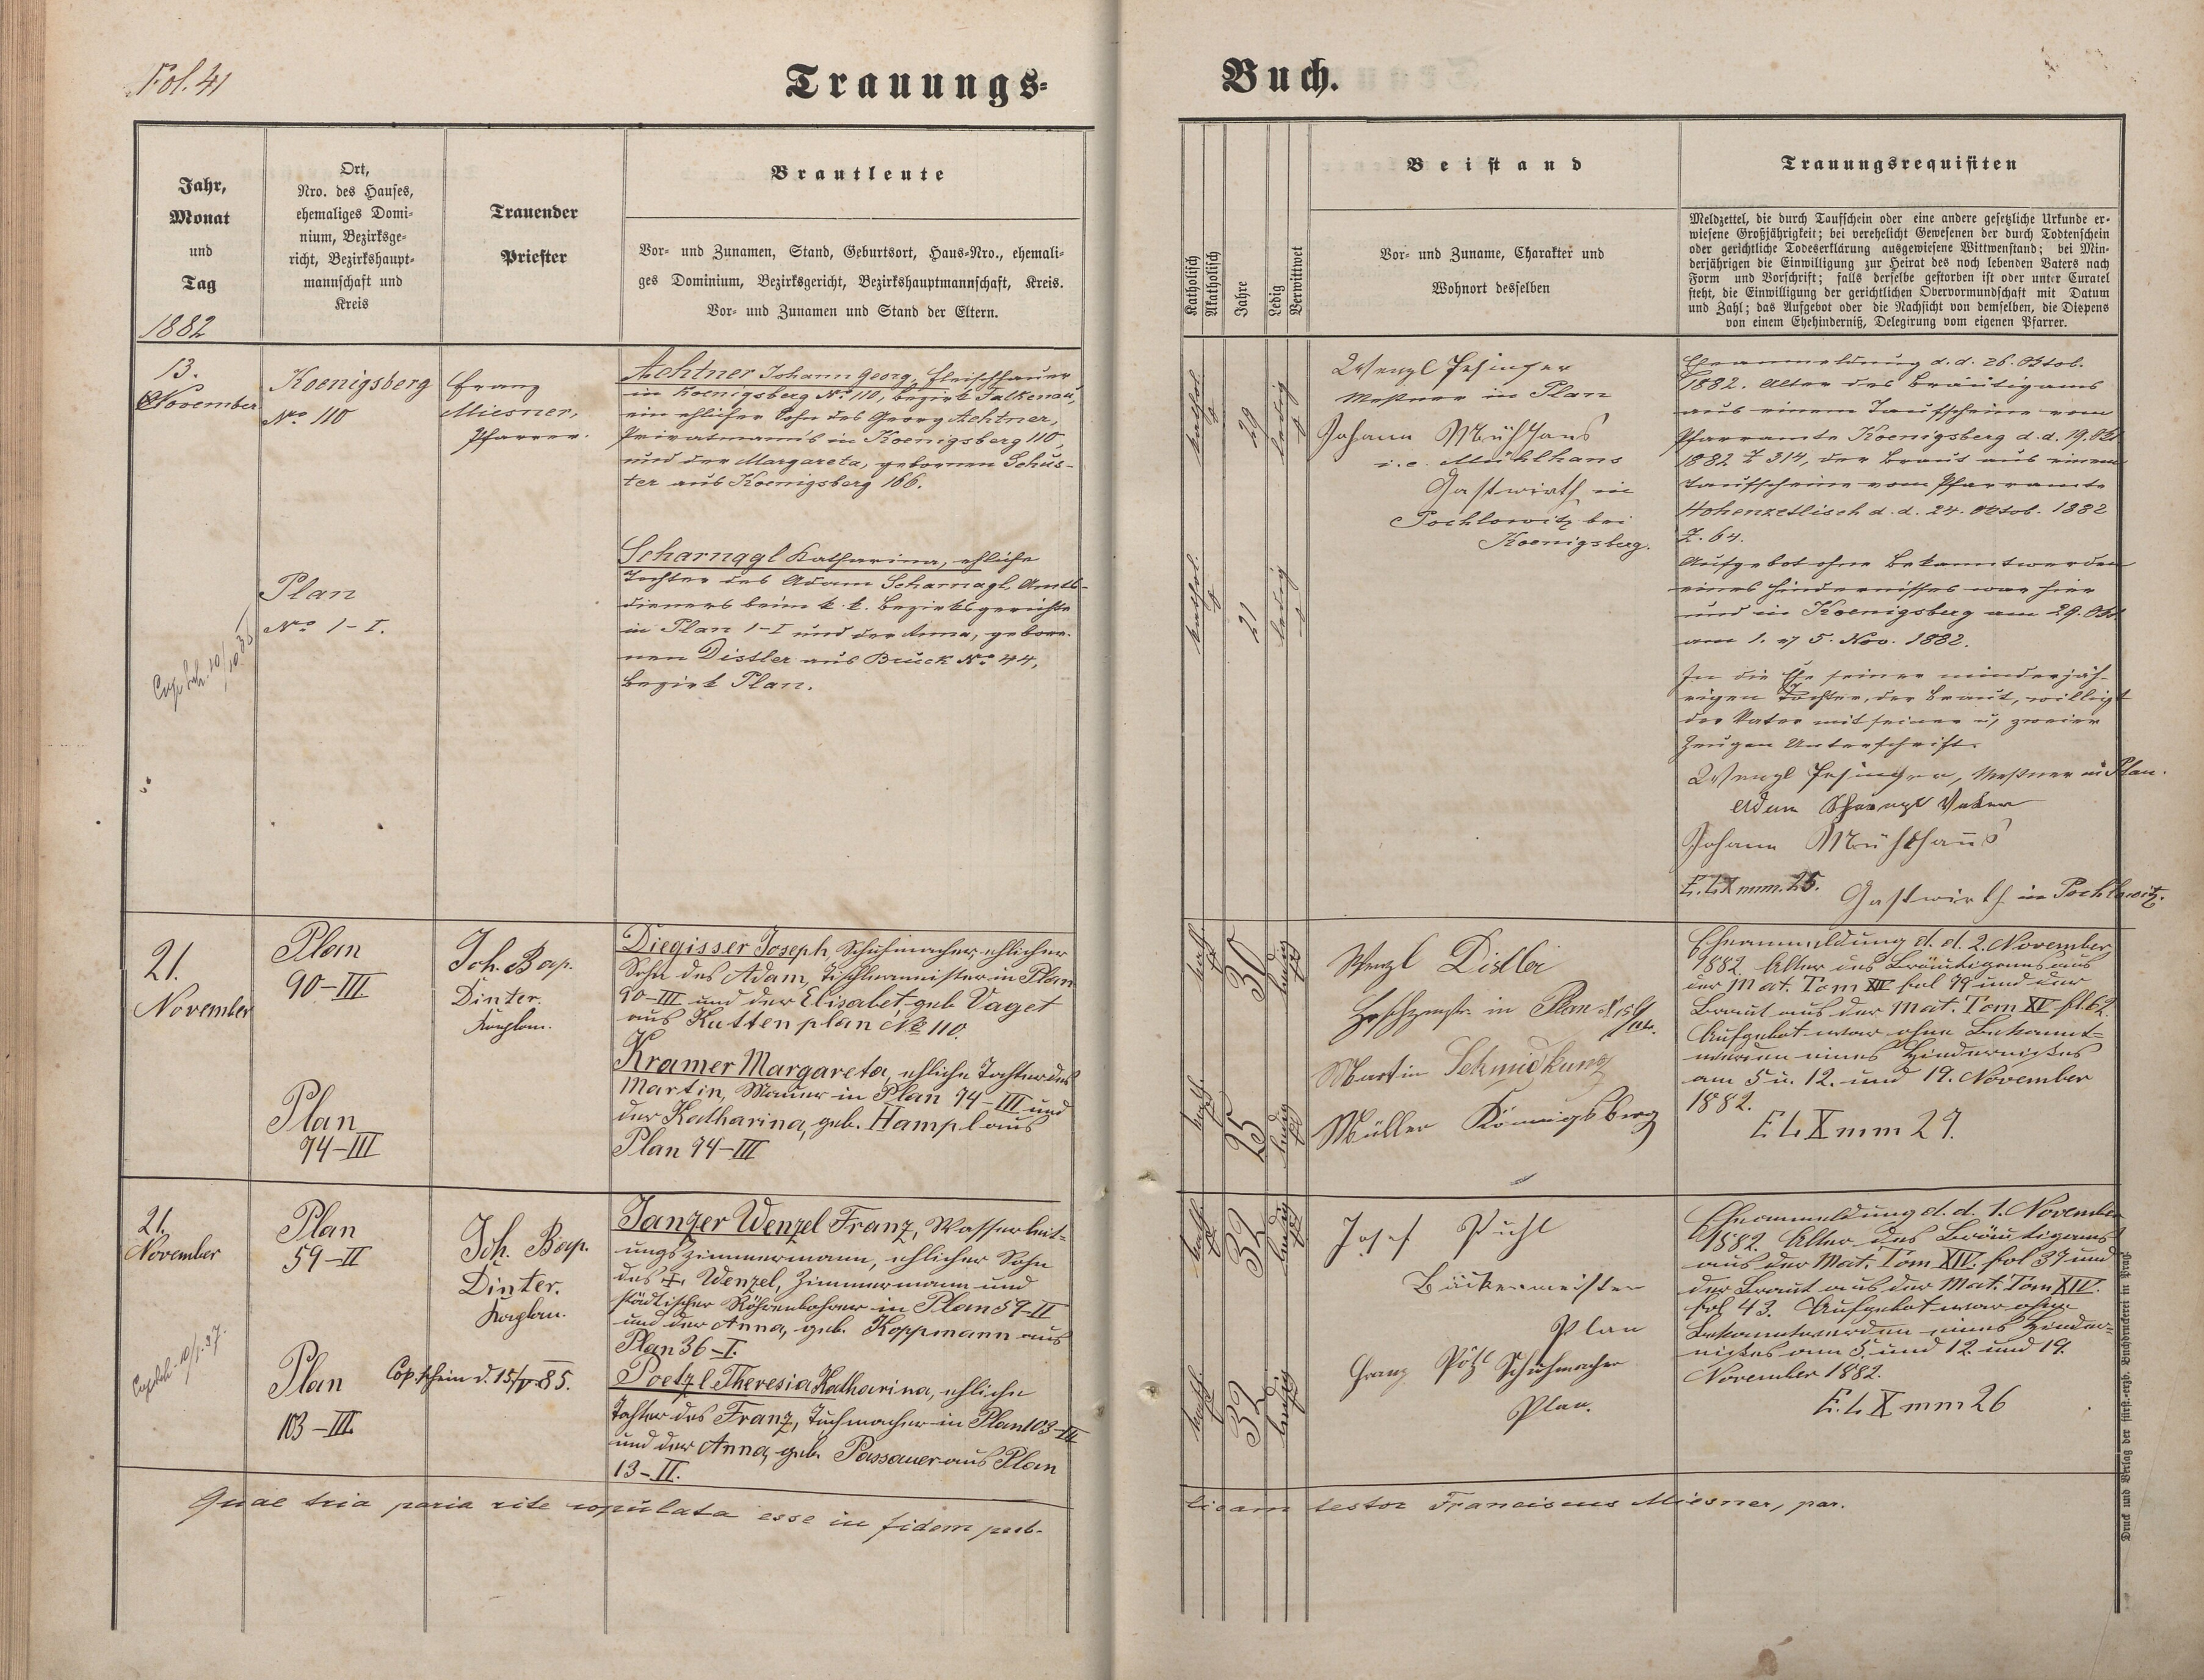 Fol. 41
Trauungs-
Buch.
Jahr,
Monat
und
Tag
1882
Ort,
Nro. des Hauses,
ehemaliges Domi-
nium, Bezirksge-
richt, Bezirkshaupt-
mannschaft und
Kreis
Trauender
Priester
Brautleute
Vor- und Zunamen, Stand, Geburtsort, Haus-Nro., ehemali-
ges Dominium, Bezirksgericht, Bezirkshauptmannschaft, Kreis.
Vor- und Zunamen und Stand der Eltern.
Katholisch
Akatholisch
Jahre
Ledig
Verwittwet
Beistand
Vor- und Zuname, Charakter und
Wohnort desselben
Trauungsrequisiten
Meldzettel, die durch Taufschein oder eine andere gesetzliche Urkunde er-
wiesene Großjährigkeit; bei verehelicht Gewesenen der durch Todtenschein
oder gerichtliche Todeserklärung ausgewiesene Wittwenstand; bei Min-
derjährigen die Einwilligung zur Heirat des noch lebenden Vaters nach
Form und Vorschrift; falls derselbe gestorben ist oder unter Curatel
steht, die Einwilligung der gerichtlichen Obervormundschaft mit Datum
und Zahl; das Aufgebot oder die Nachsicht von demselben, die Dispens
von einem Ehehinderniß, Delegirung vom eigenen Pfarrer.
13.
November
Koenigsberg
No 110
Franz
Miesner,
Pfarrer.
Achtner Johann Georg, Fleischhauer
in Koenigsberg No 110, Bezirk Falkenau,
ein ehlicher Sohn des Georg Achtner,
Privatmanns in Koenigsberg 110,
und der Margareta, gebornen Schus-
ter aus Koenigsberg 166.
Plan
No 1-I.
Scharnagl Katharina, ehliche
Tochter des Adam Scharnagl, Amts-
dieners beim k. k. Bezirksgerichte
in Plan 1-I und der Anna, gebor-
nen Distler aus Bruck No 44,
Bezirk Plan.
kathol.
29
ledig
kathol.
21
ledig
Wenzl
Meßner in Plan
Johann Mühlhans
i.e. Mühlhans
Gastwirth in
Pochlowitz bei
Koenigsberg.
Eheanmeldung d. d. 26. Oktob.
1882. Alter des Bräutigams
aus einem Taufscheine vom
Pfarramte Koenigsberg d. d. 19. Okt
1882 Z 314, der Braut aus einem
Taufscheine vom Pfarramte
Hohenzetlisch d. d. 24. Oktob. 1882
Z. 64.
Aufgebot ohne Bekanntwerden
eines Hindernisses war hier
und in Koenigsberg am 29. Okt.
am 1. & 5. Nov. 1882.
In die Ehe seiner minderjäh-
rigen Tochter, der Braut, willigt
der Vater mit seiner u. zweier
Zeugen Unterschrift.
Wenzl Meßner in Plan.
Adam Vater
Johann Mühlhans
E. L. X mm. 25. Gastwirth in Pochlowitz.
21.
November
Plan
90-III
Joh. Bap.
Dinter.
Kaplan.
Diegisser Joseph, Schuhmacher, ehlicher
Sohn des Adam, Tischlermeister in Plan
90-III und der Elisabet, geb. Vaget
aus Kuttenplan No 110.
Plan
94-III
Kramer Margareta, ehliche Tochter des
Martin, Maurer in Plan 94-III und
der Katharina, geb. Hampl aus
Plan 94-III
kath.
30
ledig
kath.
25
ledig
Wenzl Distler
in Plan
Martin Schmidkunz
Müller Königsberg
Eheanmeldung d. d. 2. November
1882. Alter des Bräutigams aus
der Mat. Tom XIII fol 79 und der
Braut aus der Mat. Tom XV fol. 62.
Aufgebot war ohne Bekannt-
werden eines Hindernißes
am 5 u. 12. und 19. November
1882.
E L X mm 27.
21.
November
Plan
59-II
Joh. Bap.
Dinter.
Kaplan.
Janzer Wenzel Franz, Wasserleit-
ungszimmermann, ehlicher Sohn
des +, Wenzel, Zimmermann und
städtischer Röhrenbohrer in Plan 59-II
und der Anna, geb. Koppmann aus
Plan 36-I.
Plan
103-III
Cop.schein d. 15/V 85.
Poetzl Theresia Katharina, ehliche
Tochter des Franz, Tuchmacher in Plan 103-III
und der Anna, geb. Passauer aus Plan
13-II.
kath.
32
ledig
kath.
32
ledig
Josef Puhl
Bäckermeister
Plan
Franz Pötzl Schuhmacher
Plan.
Eheanmeldung d. d. 1. November
1882. Alter des Bräutigams
aus der Mat. Tom XIV. fol 37 und
der Braut aus der Mat. Tom XIV.
fol 43. Aufgebot war ohne
Bekanntwerden eines Hinder-
nißes am 5. und 12. und 19.
November 1882.
E. L X mm 26
Quae tria paria rite copulata esse in fidem pub-
licam testor Franciscus Miesner, par.
Druck und Verlag der fürst.-erzb. Buchdruckerei in Prag.